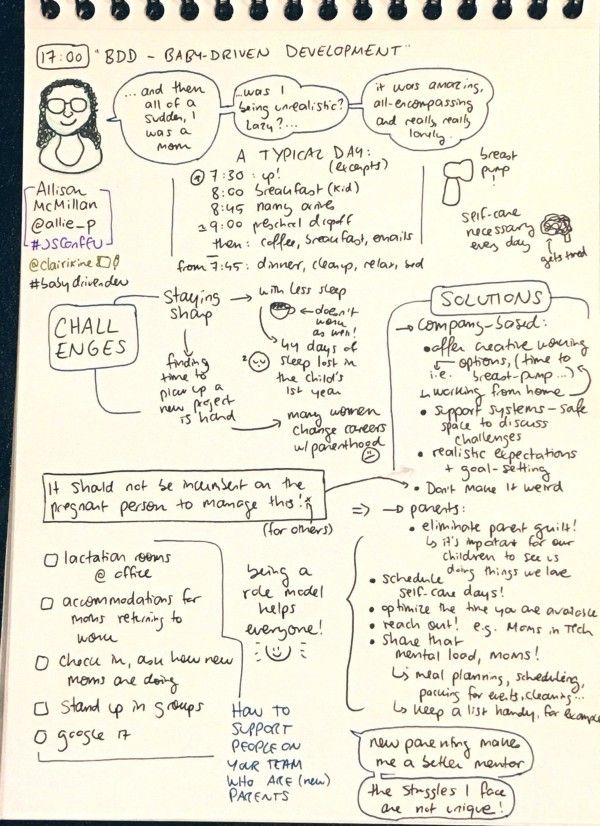 17:00 "BDD - BABY-DRIVEN DEVELOPMENT"
... and then
all of a
sudden, I
was a
mom
...was I
being unrealistic?
Lazy?...
it was amazing,
all-encompassing
and really, really
lonely.
Allison
McMillan
@allie_p
#JSConfEU
@clairikine
#babydrivendev
A TYPICAL DAY:
(excerpts)
7:30 : up!
8:00 breakfast (kid)
8:45 nanny arrives
9:00 preschool dropoff
then: coffee, breakfast, emails
from 7:45: dinner, cleanup, relax, bed
breast
pump!
self-care
necessary
every day
gets tired
CHALL
ENGES
Staying
sharp
→ with less sleep
← doesn't
work
as well!
44 days of
sleep lost in
the child's
1st year
finding
time to
pick up a
new project
is hard
many women
change careers
w/ parenthood
SOLUTIONS
→ company-based:
• offer creative working
options, (time to
i.e. breast-pump...)
↳ working from home
• support systems - safe
space to discuss
challenges
• realistic expectations
+ goal-setting
• Don't make it weird
It should not be incumbent on the
pregnant person to manage this!
(for others)
⇒ → parents:
• eliminate parent guilt!
↳ it's important for our
children to see us
doing things we love
• schedule
self-care days!
• optimize the time you are available
• reach out! e.g. Moms in Tech
• share that
mental load, moms!
↳ meal planning, scheduling,
packing for events, cleaning...
↳ keep a list handy, for example
□ lactation rooms
@ office
□ accommodations for
moms returning to
work
□ check in, ask how new
moms are doing
□ Stand up in groups
□ google it
being a
role model
helps
everyone!
HOW TO
SUPPORT
PEOPLE ON
YOUR TEAM
WHO ARE (new)
PARENTS
new parenting makes
me a better mentor
the struggles I face
are not unique!